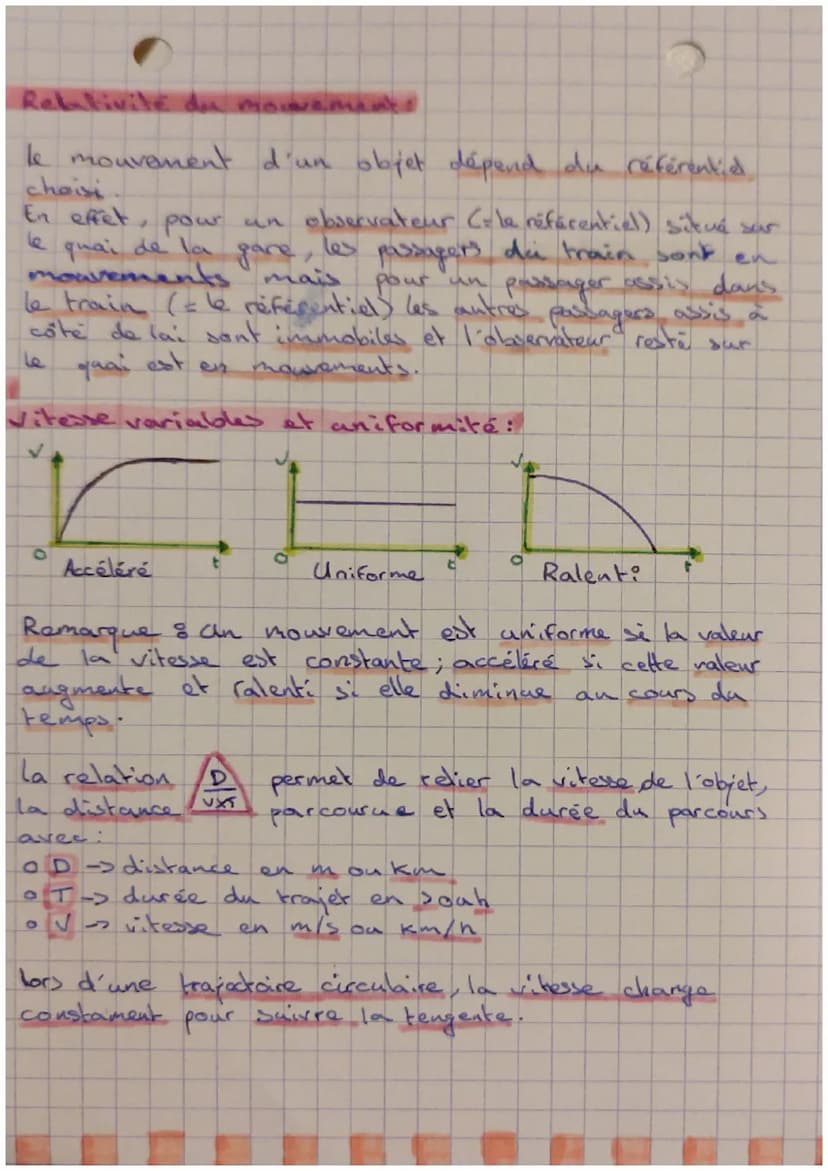 Relativité du mouvement :
le mouvement d'un objet dépend du référentiel
choisi.
En effet, pour un observateur (= le référentiel) situé sur
le quai de la gare, les passagers du train sont en
mouvements mais pour un passager assis dans
le train (= le référentiel) les autres passagers assis à
côté de lui sont immobiles et l'observateur resté sur
le quai est en mouvements.
Vitesse variables et uniformité :
V V V
0 t 0 t 0 t
Accéléré Uniforme Ralenti
Remarque : un mouvement est uniforme si la valeur
de la vitesse est constante ; accéléré si cette valeur
augmente et ralenti si elle diminue au cours du
temps.
La relation D permet de relier la vitesse de l'objet,
la distance VXT parcourue et la durée du parcours
avec :
o D -> distance en m ou Km
o T -> durée du trajet en s ou h
o V -> vitesse en m/s ou Km/h
Lors d'une trajectoire circulaire, la vitesse change
constament pour suivre la tengente.